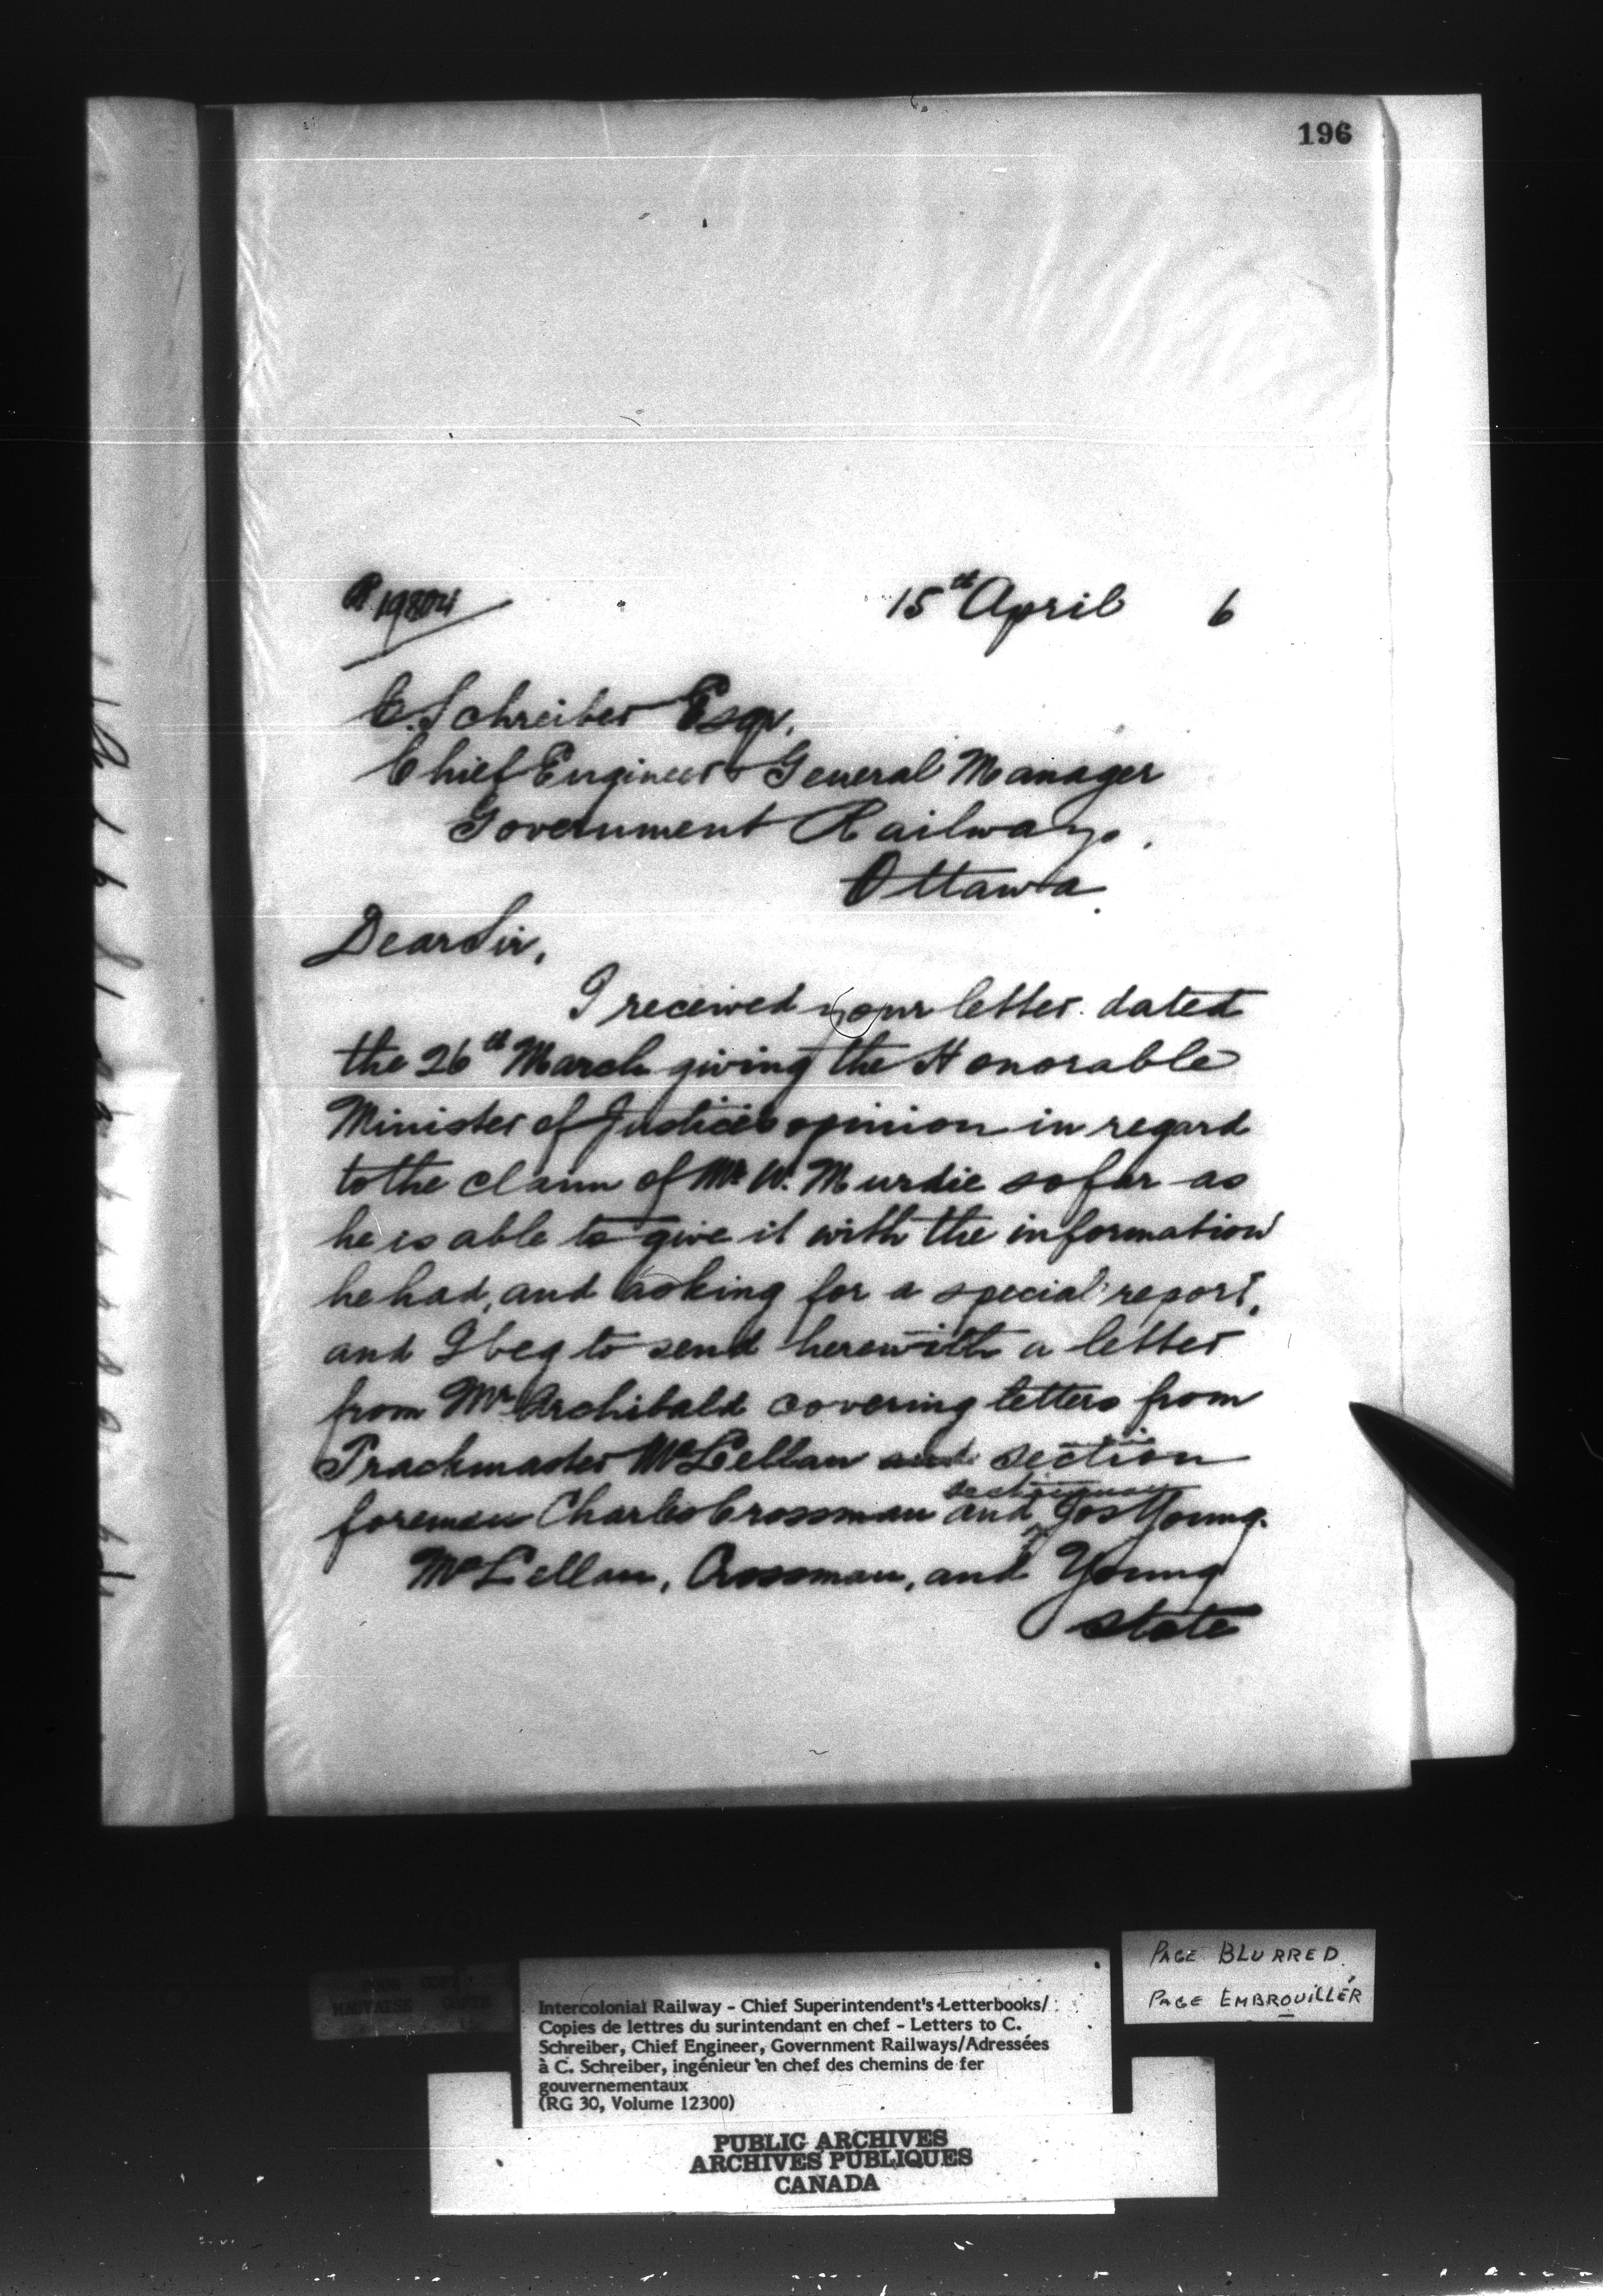 196
15th April 6
C. Schreiber Esqr,
Chief Engineer & General Manager
Government Railways.
Ottawa.
Dear Sir,
I received your letter dated
the 26th March giving the Honorable
Minister of Justices opinion in regard
to the claim of Mr W. Murdie so far as
he is able to give it with the information
he had, and asking for a special report,
and I beg to send herewith a letter
from Mr Archibald covering letters from
Trackmaster McLellan and section
sectionman
foreman Charles Crossman and Jos Young.
McLellan, Crossman, and Young
state
Intercolonial Railway - Chief Superintendent's Letterbooks/
Copies de lettres du surintendant en chef - Letters to C.
Schreiber, Chief Engineer, Government Railways/Adressées
à C. Schreiber, ingénieur en chef des chemins de fer
gouvernementaux
(RG 30, Volume 12300)
PAGE BLURRED
PAGE EMBROUILLÉR
PUBLIC ARCHIVES
ARCHIVES PUBLIQUES
CANADA